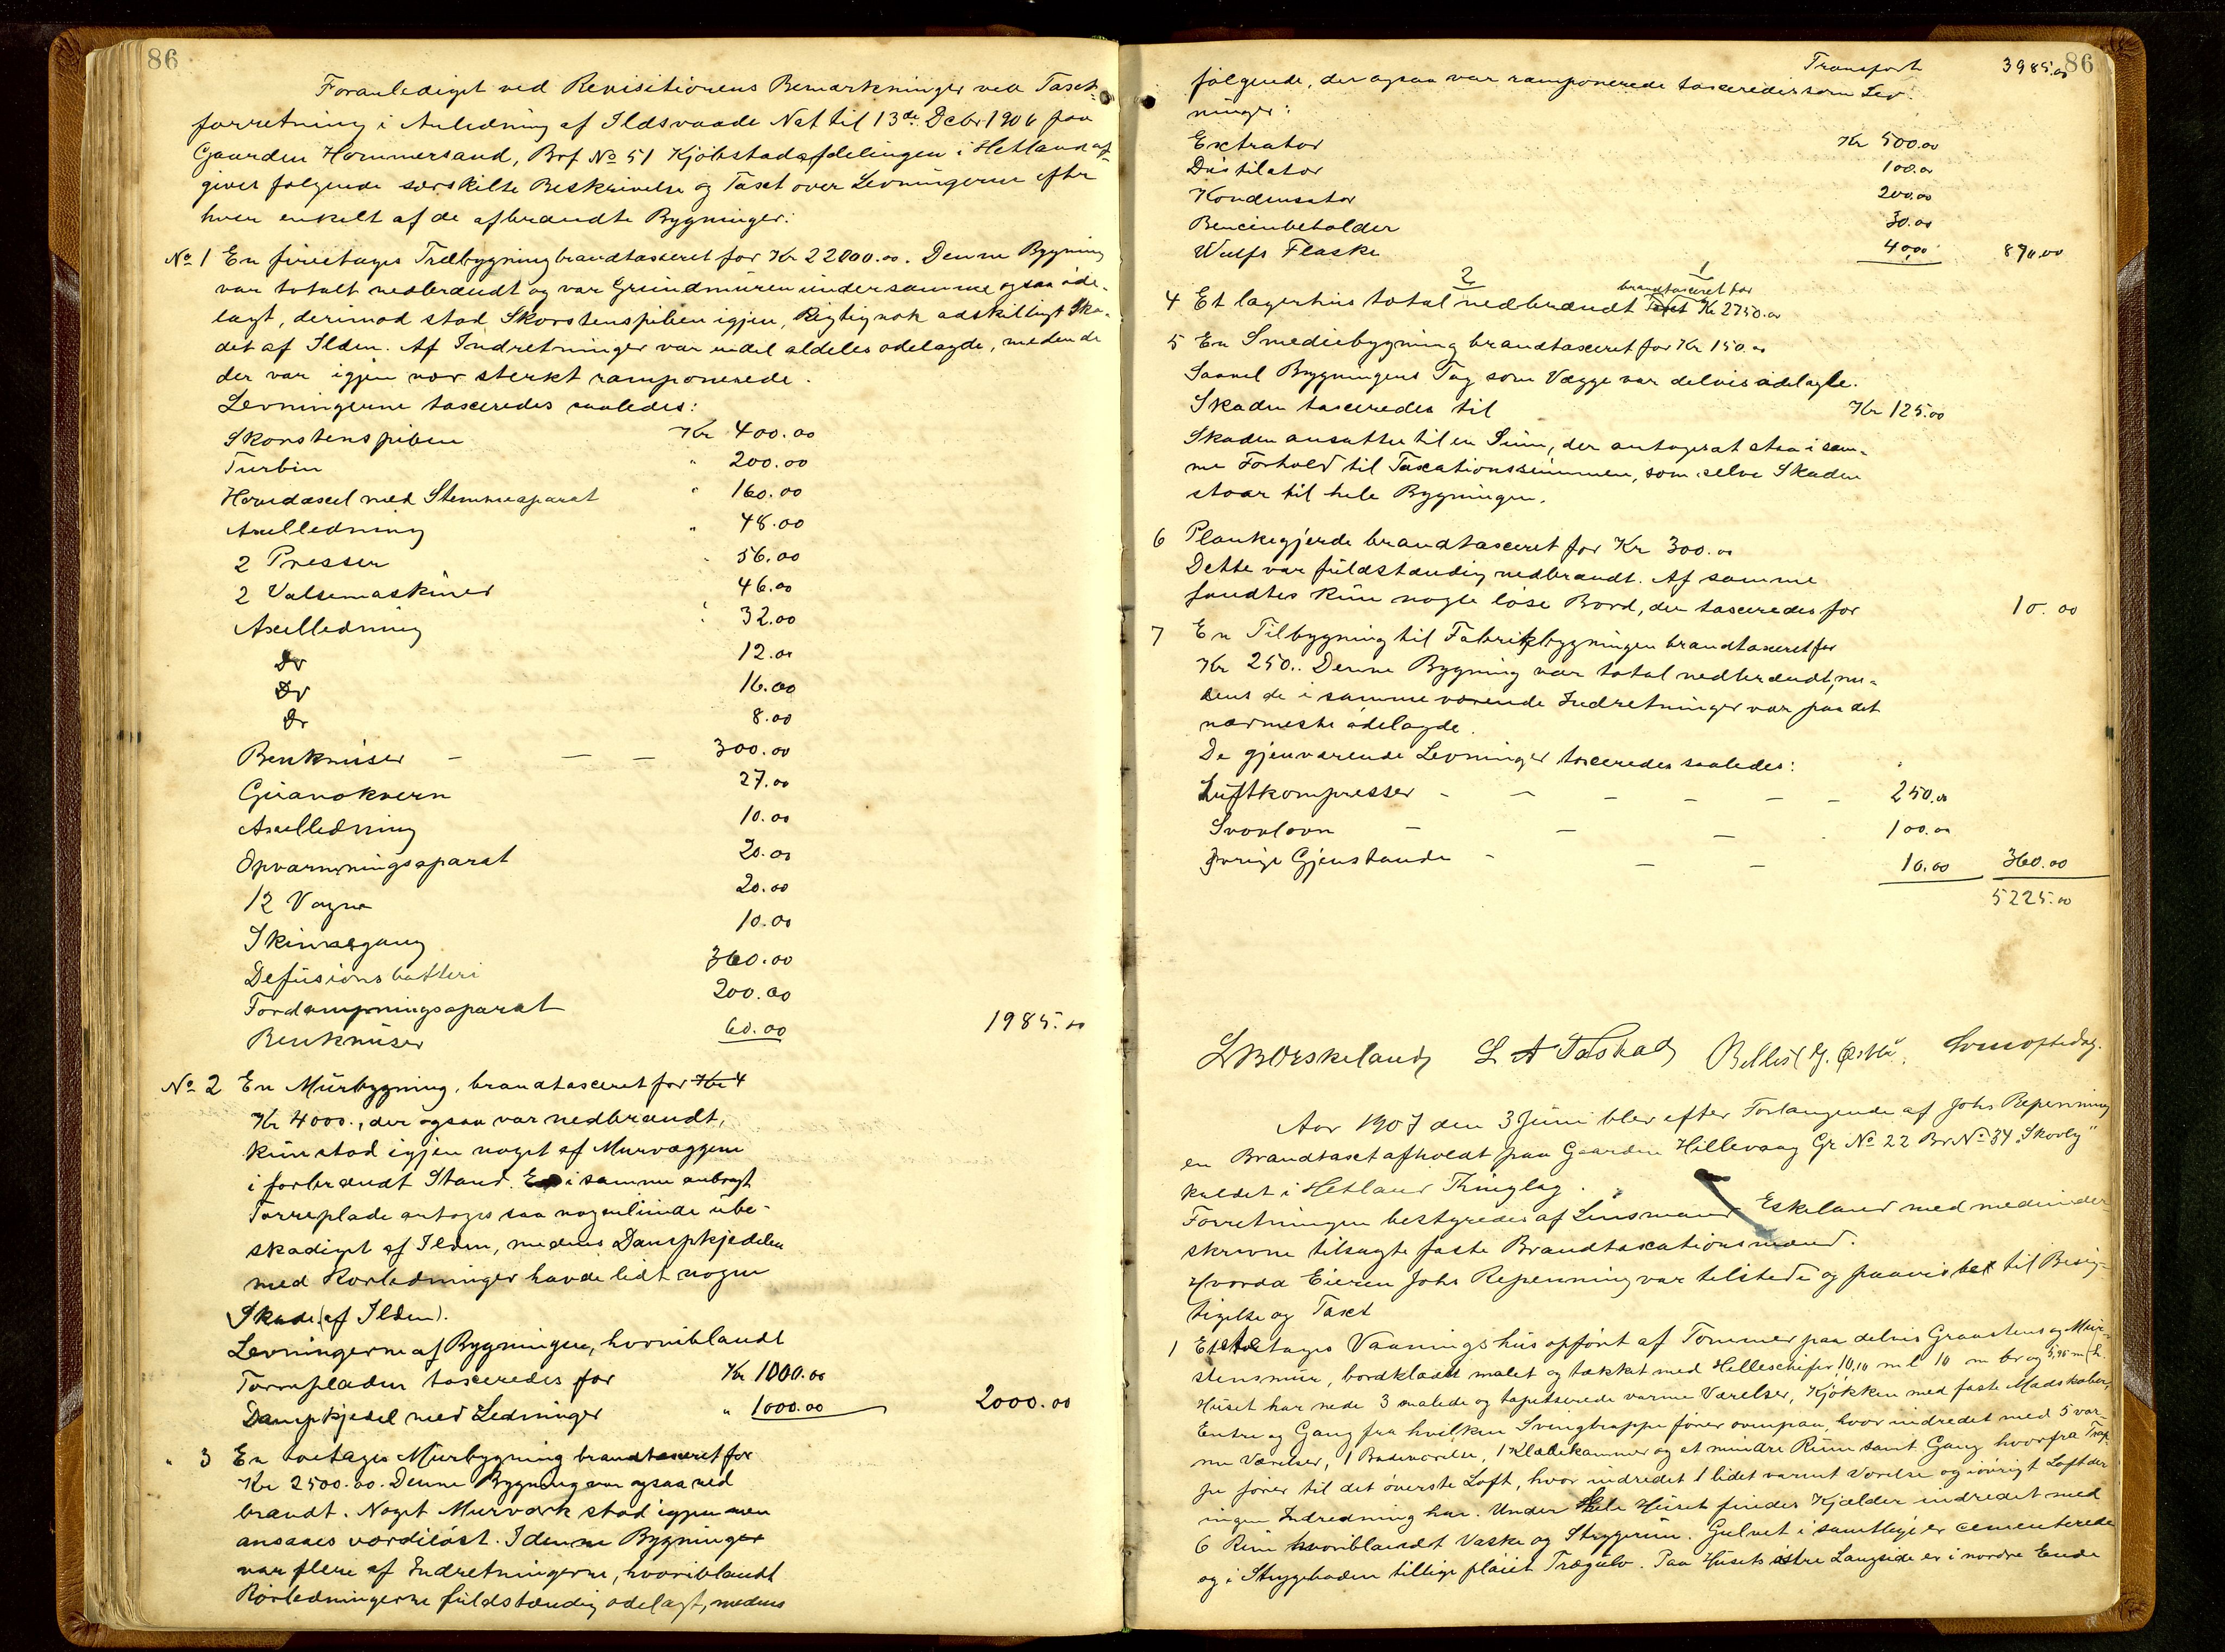 86
Foranlediget ved Revisitionens Bemærkninger ved Taxt-
forretning i Anledning af Ildsvaade Nat til 13de Debr 1906 paa
Gaarden Hommersand, Brf No 51 Kjøbstadafdelingen i Hetland af-
gives følgende særskilte Beskrivelse og Taxt over Levningerne efter
hver enkelt af de afbrændte Bygninger:
No 1 En fireetages Træbygning brandtaxeret for Kr 22000.00. Denne Bygning
var totalt nedbrændt og var Grundmuren under samme ogsaa øde-
lagt, derimod stod Skorstenspiben igjen, Rigtignok adskilligt ska-
det af Ilden. Af Indretninger var endel aldeles ødelagde, meden de
der var igjen var sterkt ramponerede.
Levningerne taxeredes saaledes:
Skorstenspiben Kr 400.00
Turbin " 200.00
Hovedaxel med Stemmeaparat " 160.00
Axelledning " 48.00
2 Presser " 56.00
2 Valsemaskiner 46.00
Axelledning " 32.00
Do 12.00
Do 16.00
Do 8.00
Benknuser — — — 300.00
Guanokvern 27.00
Axelledning 10.00
Opvarmningsaparat 20.00
12 Vogne 20.00
Skinnegang 10.00
Defusionsbatteri 360.00
Fordampningsaparat 200.00
Benknuser 60.00 1985.00
No 2 En Murbygning, brandtaxeret for Kr 4
Kr 4000., der ogsaa var nedbrændt,
kun stod igjen noget af Murvæggene
i forbrændt Stand. En i samme anbragt
Tørreplade antages saa nogenlunde ube-
skadiget af Ilden, medens Dampkjedelen
med Rørledninger havde lidt nogen
Skade (af Ilden).
Levningerne af Bygningen, hvoriblandt
Tørrepladen taxeredes for Kr 1000.00
Dampkjedel med Ledninger " 1000.00 2000.00
" 3 En toetages Murbygning brandtaxeret for
Kr 2500.00. Denne Bygning var ogsaa ned
brændt. Noget Murværk stod igjen men
ansaaes værdiløst. I denne Bygninger
var flere af Indretningerne, hvoriblandt
Rørledningerne fuldstændig ødelagt, medens
86
Transport 3985.00
følgende, der ogsaa var ramponerede taxeredes som Lev-
ninger:
Extrator Kr 500.00
Distilator 100.00
Kondensator 200.00
Bencinbeholder 30.00
Wulfs Flaske 40.00 870.00
2 1
brandtaxeret for
4 Et lagerhus total nedbrændt Taxt Kr 2750.00
5 En Smediebygning brandtaxeret for Kr 150.00
Saavel Bygningens Tag som Vægge var delvis ødelagte.
Skaden taxeredes til Kr 125.00
Skaden ansættes til en Sum, der antages at staa i sam-
me Forhold til Taxationssummen, som selve Skaden
staar til hele Bygningen.
6 Plankegjerde brandtaxeret for Kr 300.00
Dette var fuldstændig nedbrændt. Af samme
fandtes kun nogle løse Bord, der taxeredes for 10.00
7 En Tilbygning til Fabrikbygningen brandtaxeret for
Kr 250.. Denne Bygning var total nedbrændt, me-
dens de i samme værende Indretninger var paa det
nærmeste ødelagde.
De gjenværende Levninger taxeredes saaledes:
Luftkompresser - - - - - - 250.00
Svovlovn - - - 100.00
Øvrige Gjenstande - - - 10.00 360.00
5225.00
Eskeland L A Tastad
Aar 1907 den 3 Juni blev efter Forlangende af Johs Repenning
en Brandtaxt afholdt paa Gaarden Hillevaag Gr No 22 Br No 34 "Skovly"
kaldet i Hetland Thinglag.
Forretningen bestyredes af Lensmand Eskeland med medunder
skrevne tilsagte faste Brandtaxationsmænd.
Hvorda Eieren Johs Repenning var tilstede og paaviste til Besig-
tigelse og Taxt
1 Et toetages Vaaningshus opført af Tømmer paa delvis Graastens og Mur-
stensmur, bordklædt malet og tækket med Helleskifer 10,10 m l 10 m br og 5,95 m h.
Huset har nede 3 malede og tapetserede varme Værelser, Kjøkken med faste Madskaber,
Entre og Gang fra hvilken Svingtrappe fører ovenpaa, hvor indredet med 5 var-
me Værelser, 1 Badeværelse, 1 Klædekammer og et mindre Rum samt Gang hvorfra Trap-
pe fører til det øverste Loft, hvor indredet 1 lidet varmt Værelse og iøvrigt Loft der
ingen Indredning har. Under Hele Huset findes Kjælder indredet med
6 Rum hvoriblandt Vaske og Strygerum. Gulvet i samtlige er cementerede
og i Strygeboden tillige pløiet Trægulv. Paa Husets østre Langside er i nordre Ende